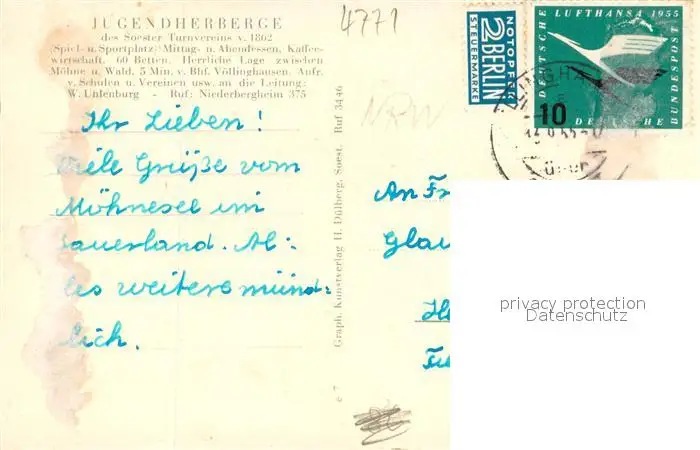 JUGENDHERBERGE
des Soester Turnvereins v. 1862
(Spiel- u. Sportplatz) Mittag- u. Abendessen, Kaffee-
wirtschaft. 60 Betten. Herrliche Lage zwischen
Möhne u. Wald. 5 Min. v. Bhf. Völlinghausen. Anfr.
v. Schulen u. Vereinen usw. an die Leitung:
W. Unfenburg - Ruf: Niederbergheim 375
Ihr Lieben!
Viele Grüße vom
Möhnesee im
Sauerland. Al-
les weitere münd-
lich.
Graph. Kunstverlag H. Dülberg, Soest. Ruf 3446
e 7
4771
NRW
NOTOPFER
2 BERLIN
STEUERMARKE
DEUTSCHE LUFTHANSA 1955
10
DEUTSCHE BUNDESPOST
An Fr
Glau
privacy protection
Datenschutz